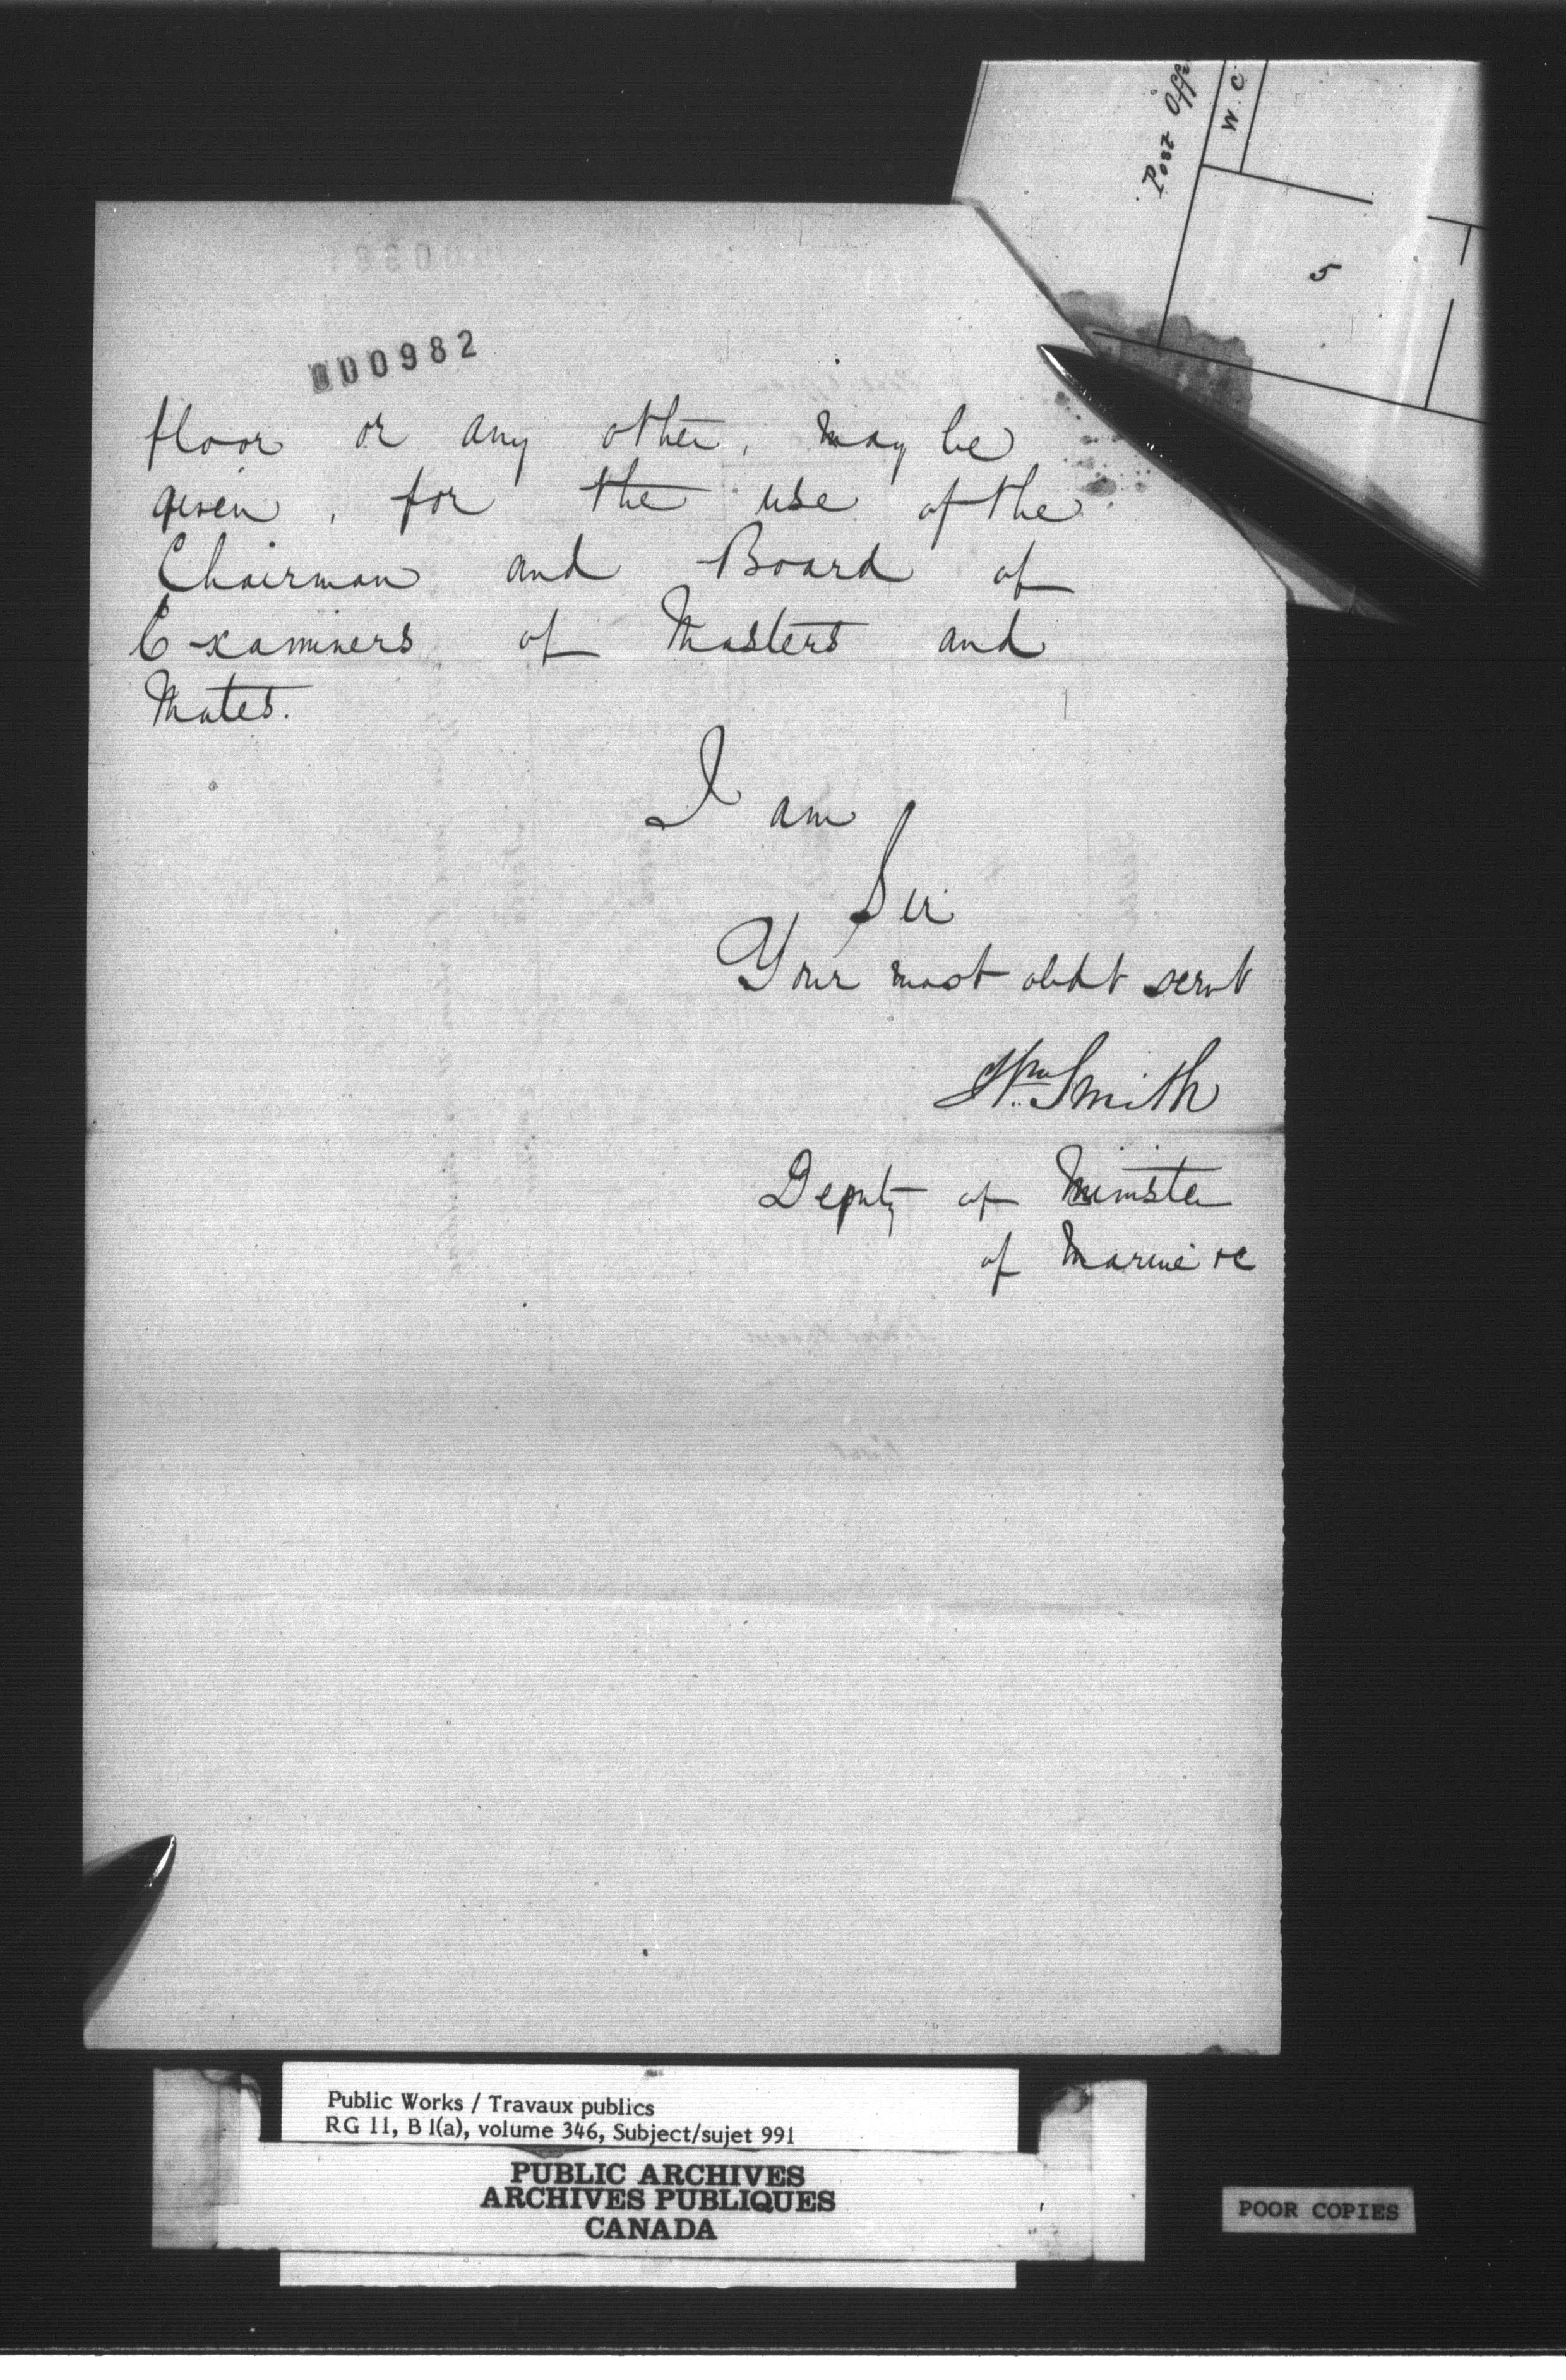 Post Offi
W. C
5
000982
floor or any other, may be
given, for the use of the
Chairman and Board of
Examiners of Masters and
Mates.
I am
Sir
Your most obdt servt
Wm Smith
Deputy of Minister
of Marine &c
Public Works / Travaux publics
RG 11, B 1(a), volume 346, Subject/sujet 991
PUBLIC ARCHIVES
ARCHIVES PUBLIQUES
CANADA
POOR COPIES